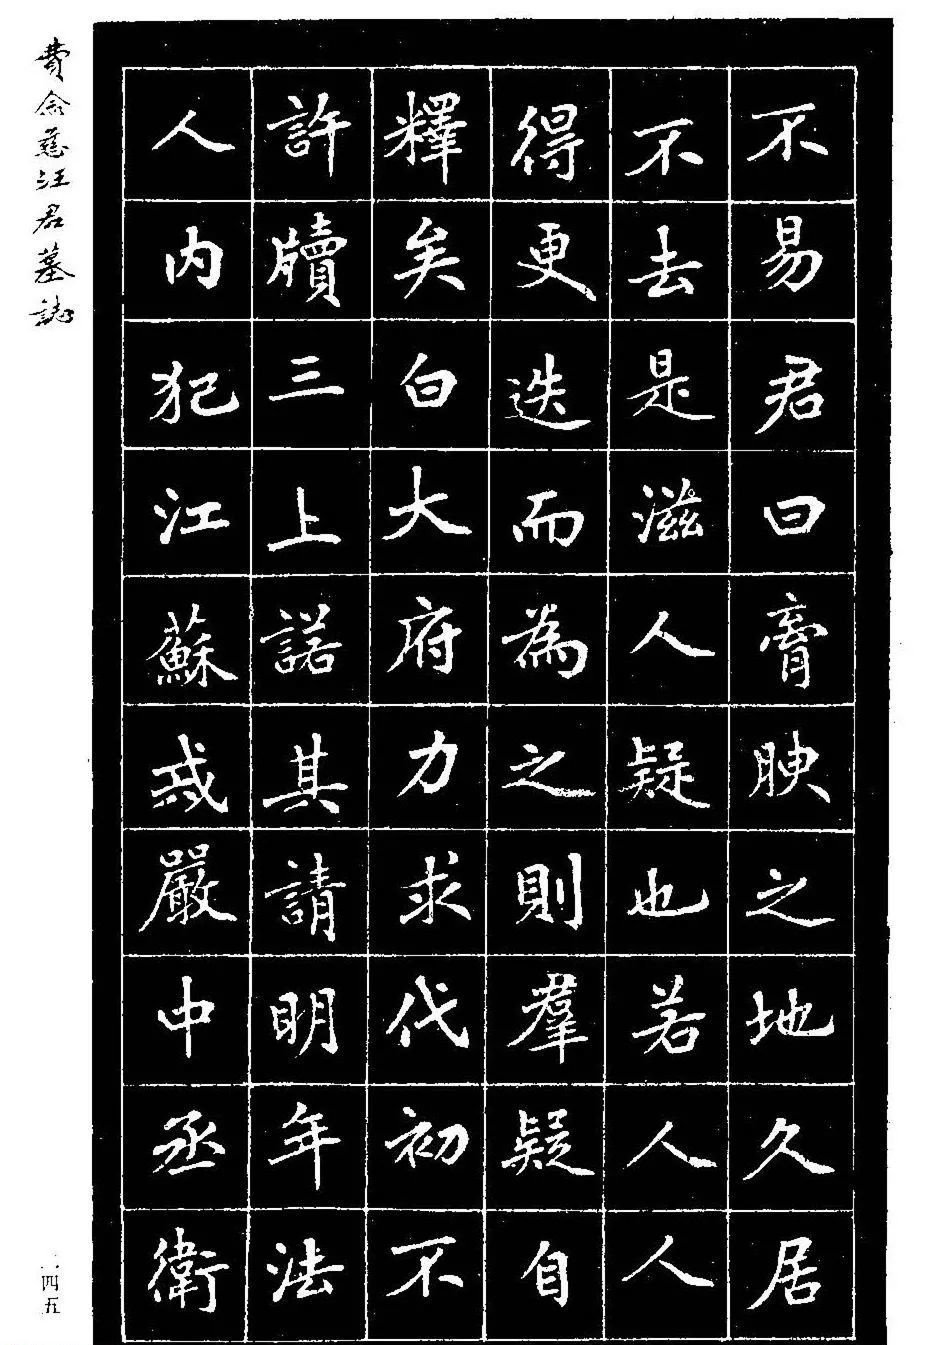 不易君曰膏腴之地久居
不去是滋人疑也若人人
得更迭而為之則羣疑自
釋矣白大府力求代初不
許牘三上諾其請明年法
人内犯江蘇戒嚴中丞衛
費念慈汪君墓誌
一四五